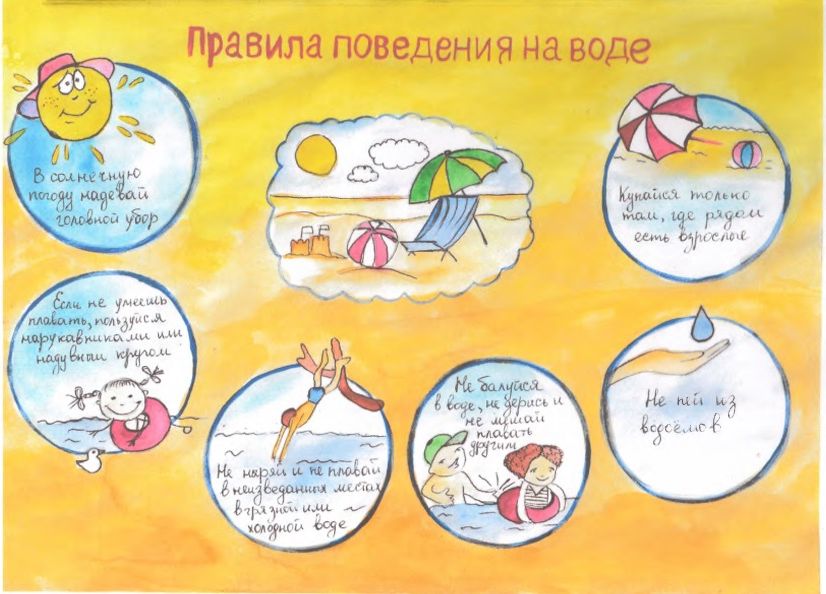 Правила поведения на воде
В солнечную
погоду надевай
головной убор
Купайся только
там, где рядом
есть взрослые
Если не умеешь
плавать, пользуйся
нарукавниками или
надувным кругом
Не ныряй и не плавай
в неизведанных местах
в грязной или
холодной воде
Не балуйся
в воде, не дерись и
не мешай
плавать
другим
Не пей из
водоёмов